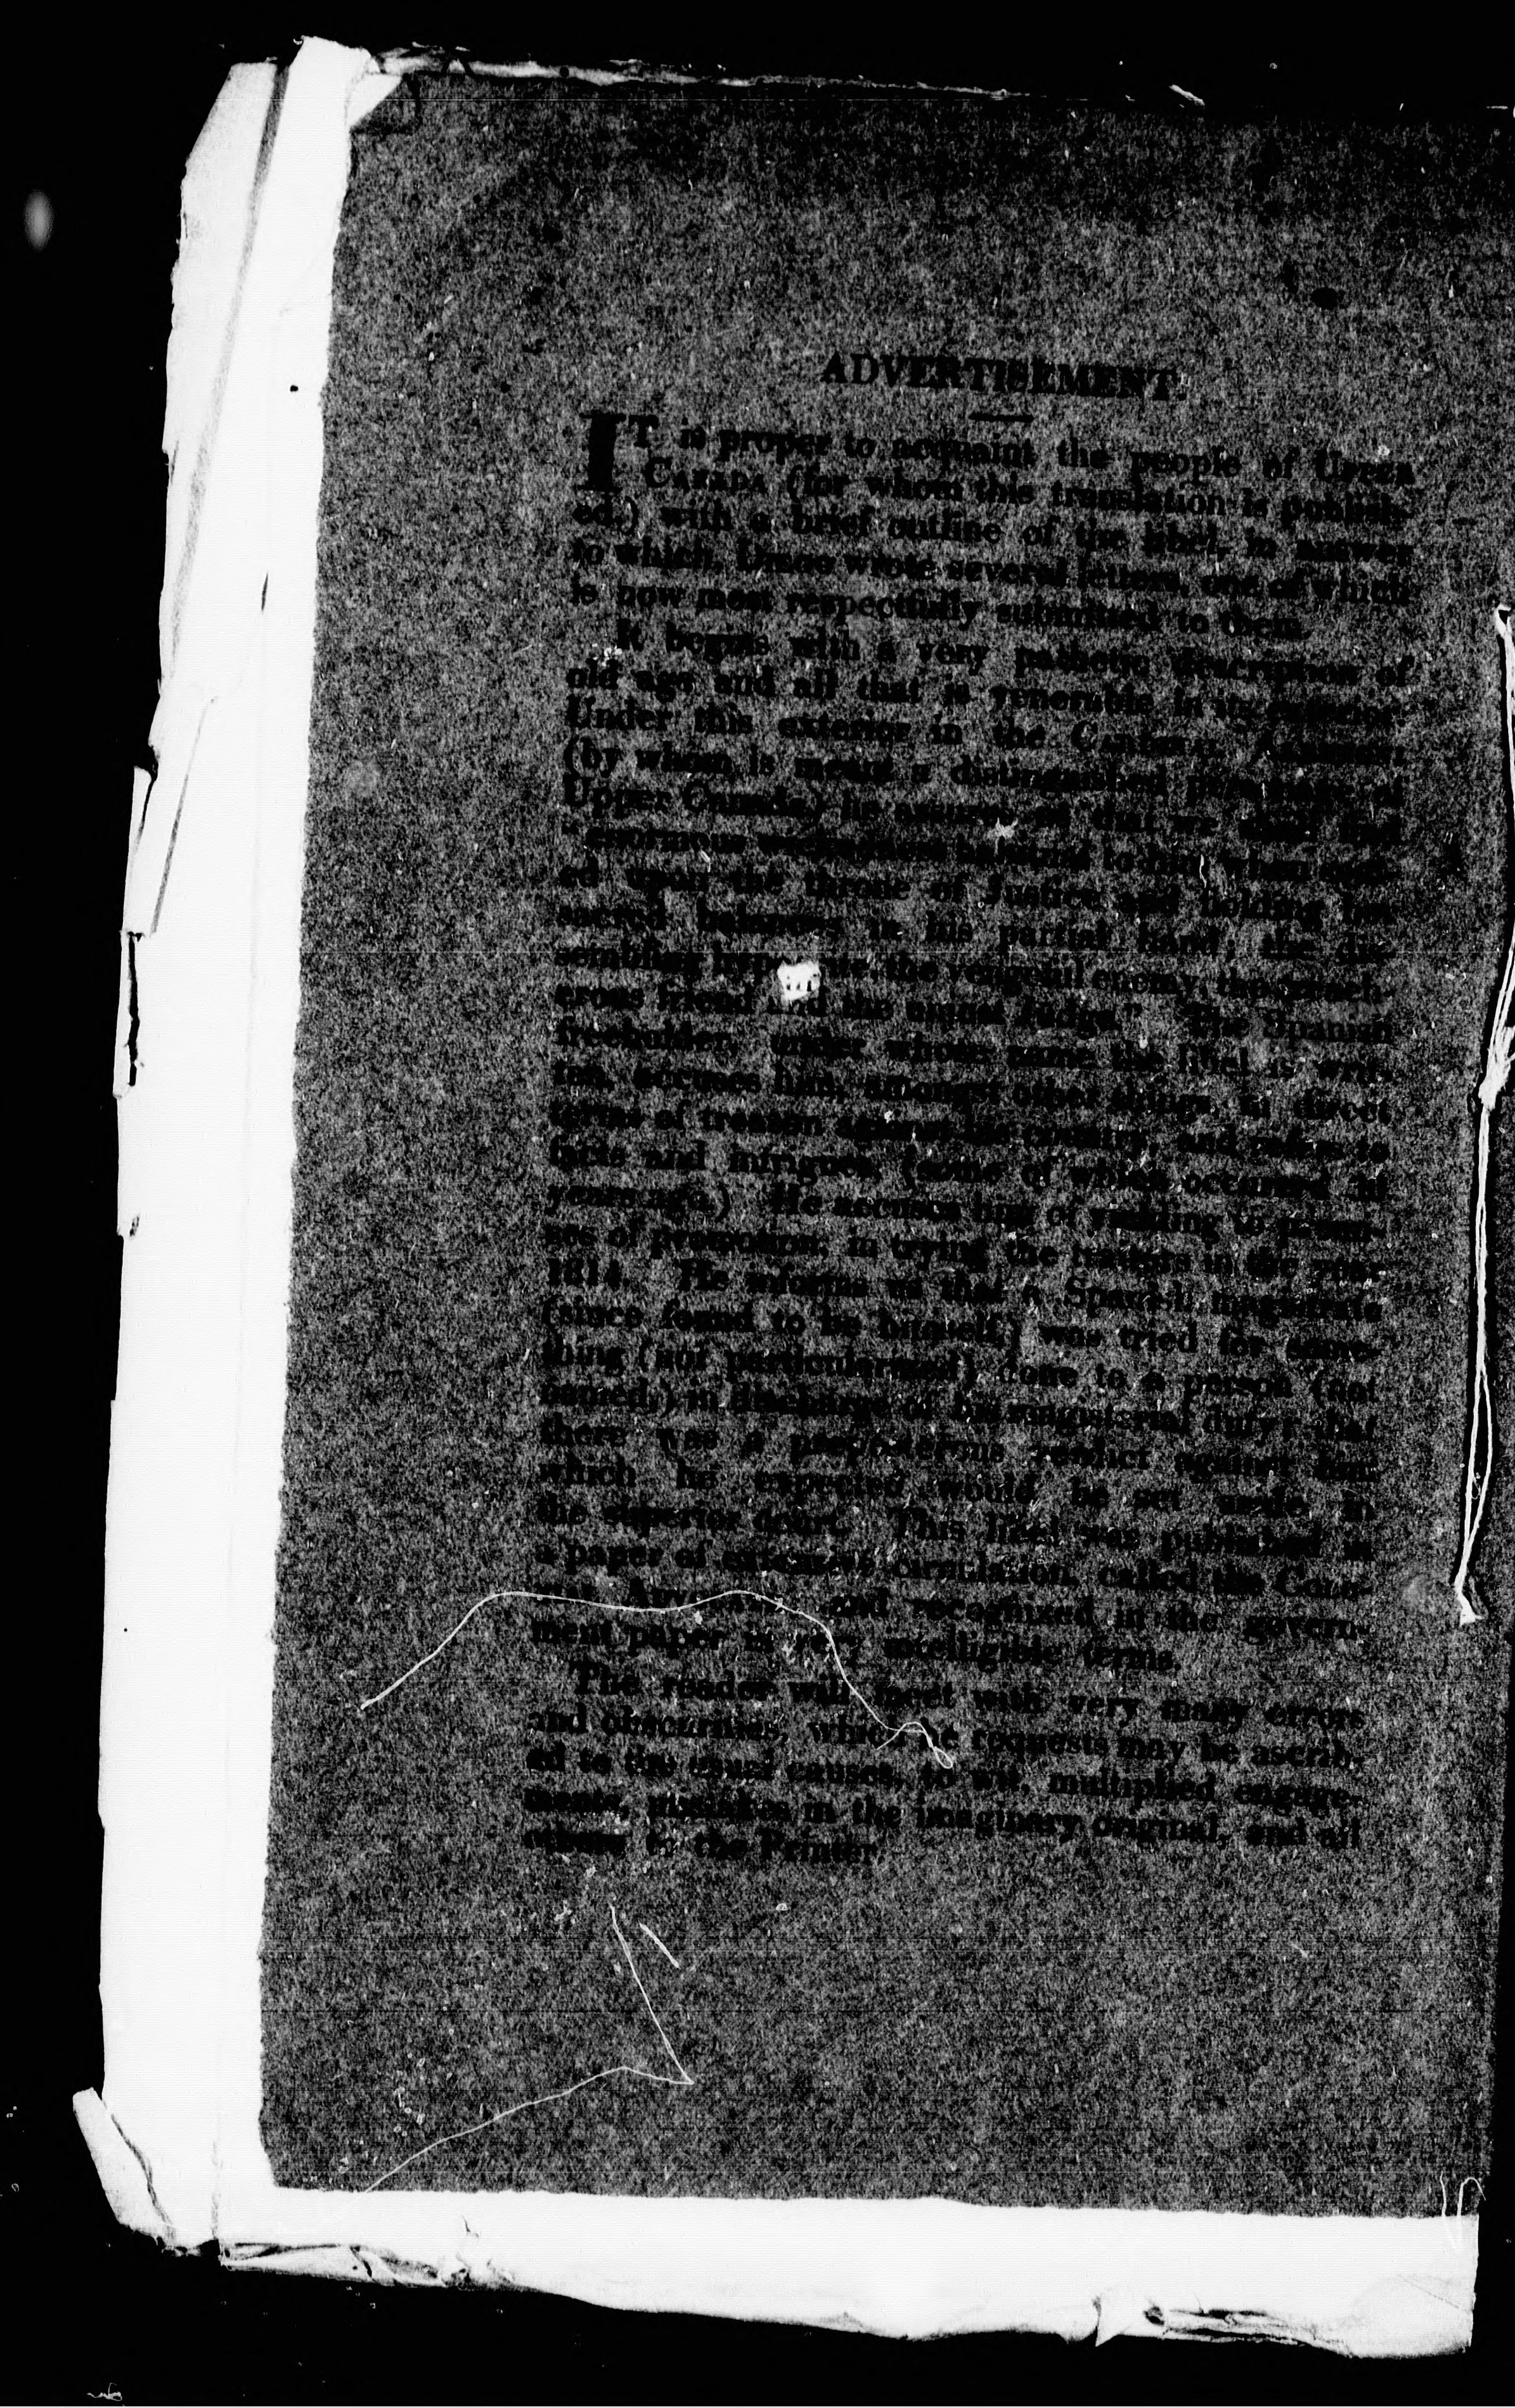 ADVERTISEMENT.
IT is proper to acquaint the people of UPPER
CANADA (for whom this translation is publish-
ed,) with a brief outline of the libel, in answer
to which, wrote several letters, one of which
is now most respectfully submitted to them.
It begins with a very pathetic description of
old age and all that is venerable in its exterior.
Under this exterior in the CARDINAL
(by whom is meant a distinguished personage of
Upper Canada) he assures us that we shall find
" enormous to him when seat-
ed upon the throne of Justice and holding her
sacred balances in his partial hand; the dis-
sembling the vengeful enemy, the treach-
erous friend and the unjust Judge." The Spanish
freeholder, under whose name the libel is writ-
ten, accuses him, amongst other things, in direct
terms of treason against his country, and refers to
facts and intrigues, (some of which occurred
years ago.) He accuses him of yielding to
of promotion, in trying the traitors in the year
1814. He informs us that a Spanish magistrate
(since found to be himself) was tried for some-
thing (not particularised) done to a person (not
named,) in discharge of his magisterial duty; that
there was a preposterous verdict against him
which he expected would be set aside in
the superior court. This libel was published in
a paper of extensive circulation, called the COLO-
NIAL ADVOCATE, and recognized in the govern-
ment paper in very intelligible terms.
The reader will meet with very many errors
and obscurities, which he requests may be ascrib-
ed to the usual causes, to wit, multiplied engage-
ments, mistakes in the imaginary original, and all
others to the Printer.